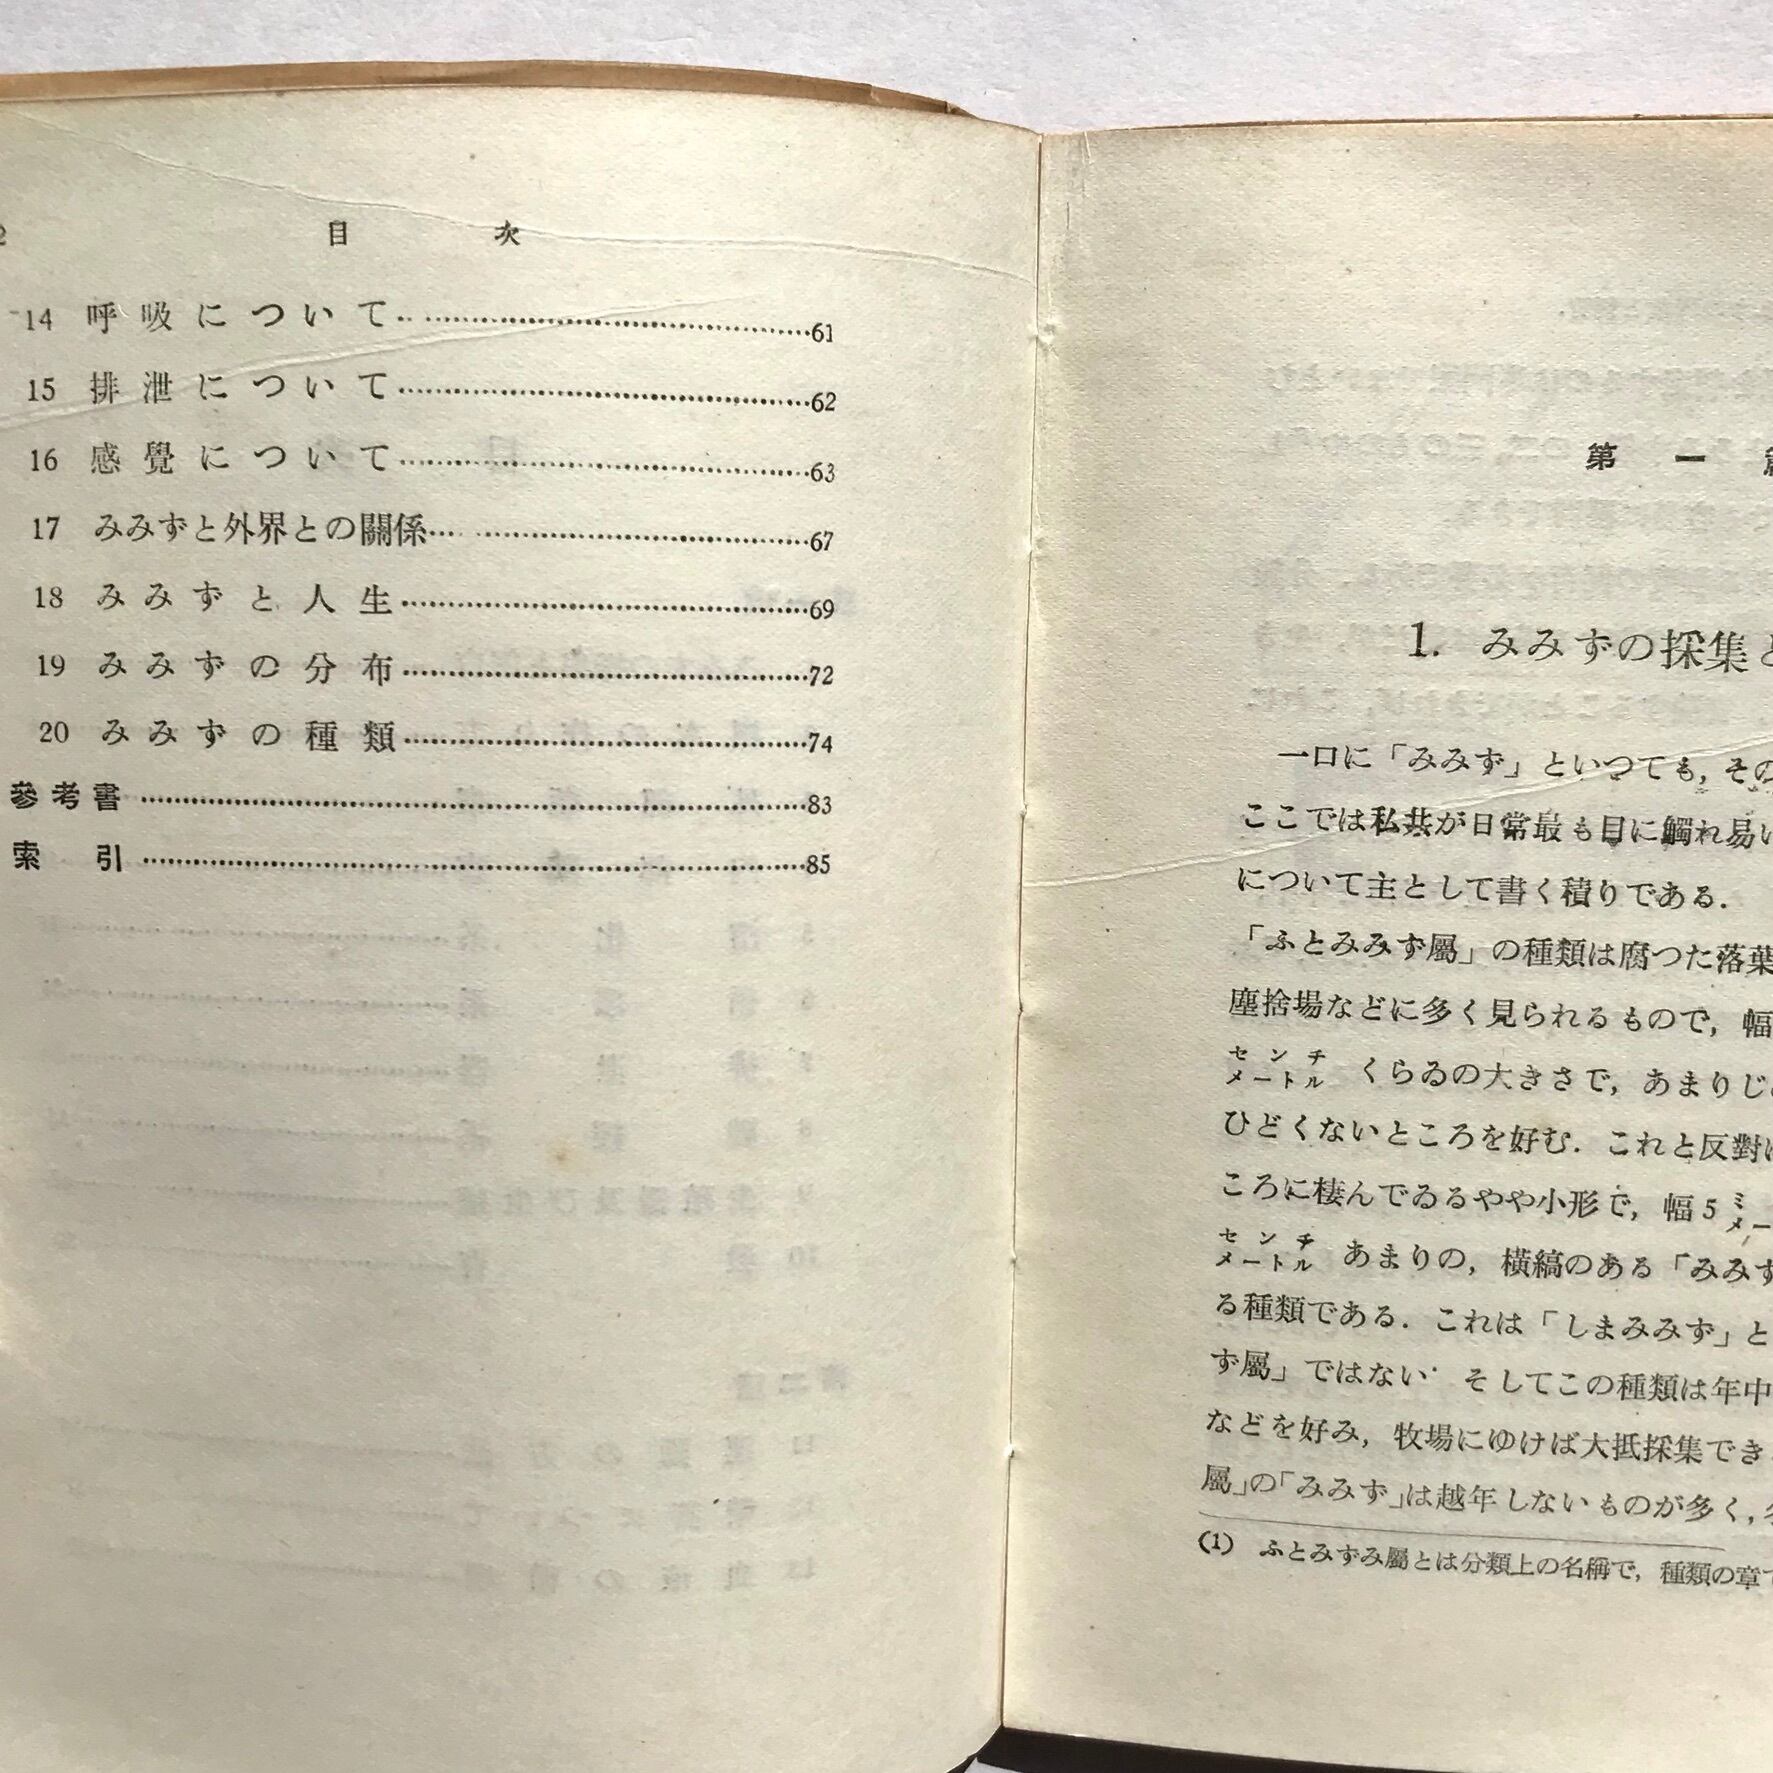 2 目次
14 呼吸について 61
15 排泄について 62
16 感覺について 63
17 みみずと外界との關係 67
18 みみずと人生 69
19 みみずの分布 72
20 みみずの種類 74
參考書 83
索引 85
第一
1. みみずの採集と
一口に「みみず」といつても，その
ここでは私共が日常最も目に觸れ易い
について主として書く積りである．
「ふとみみず屬」の種類は腐つた落葉
塵捨場などに多く見られるもので，幅
センチメートル くらゐの大きさで，あまりじ
ひどくないところを好む．これと反對に
ころに棲んでゐるやや小形で，幅 5 ミ
センチメートル あまりの，橫縞のある「みみず
る種類である．これは「しまみみず」と
ず屬」ではない． そしてこの種類は年中
などを好み，牧場にゆけば大抵採集でき
屬」の「みみず」は越年しないものが多く，
(1) ふとみずみ屬とは分類上の名稱で，種類の章で